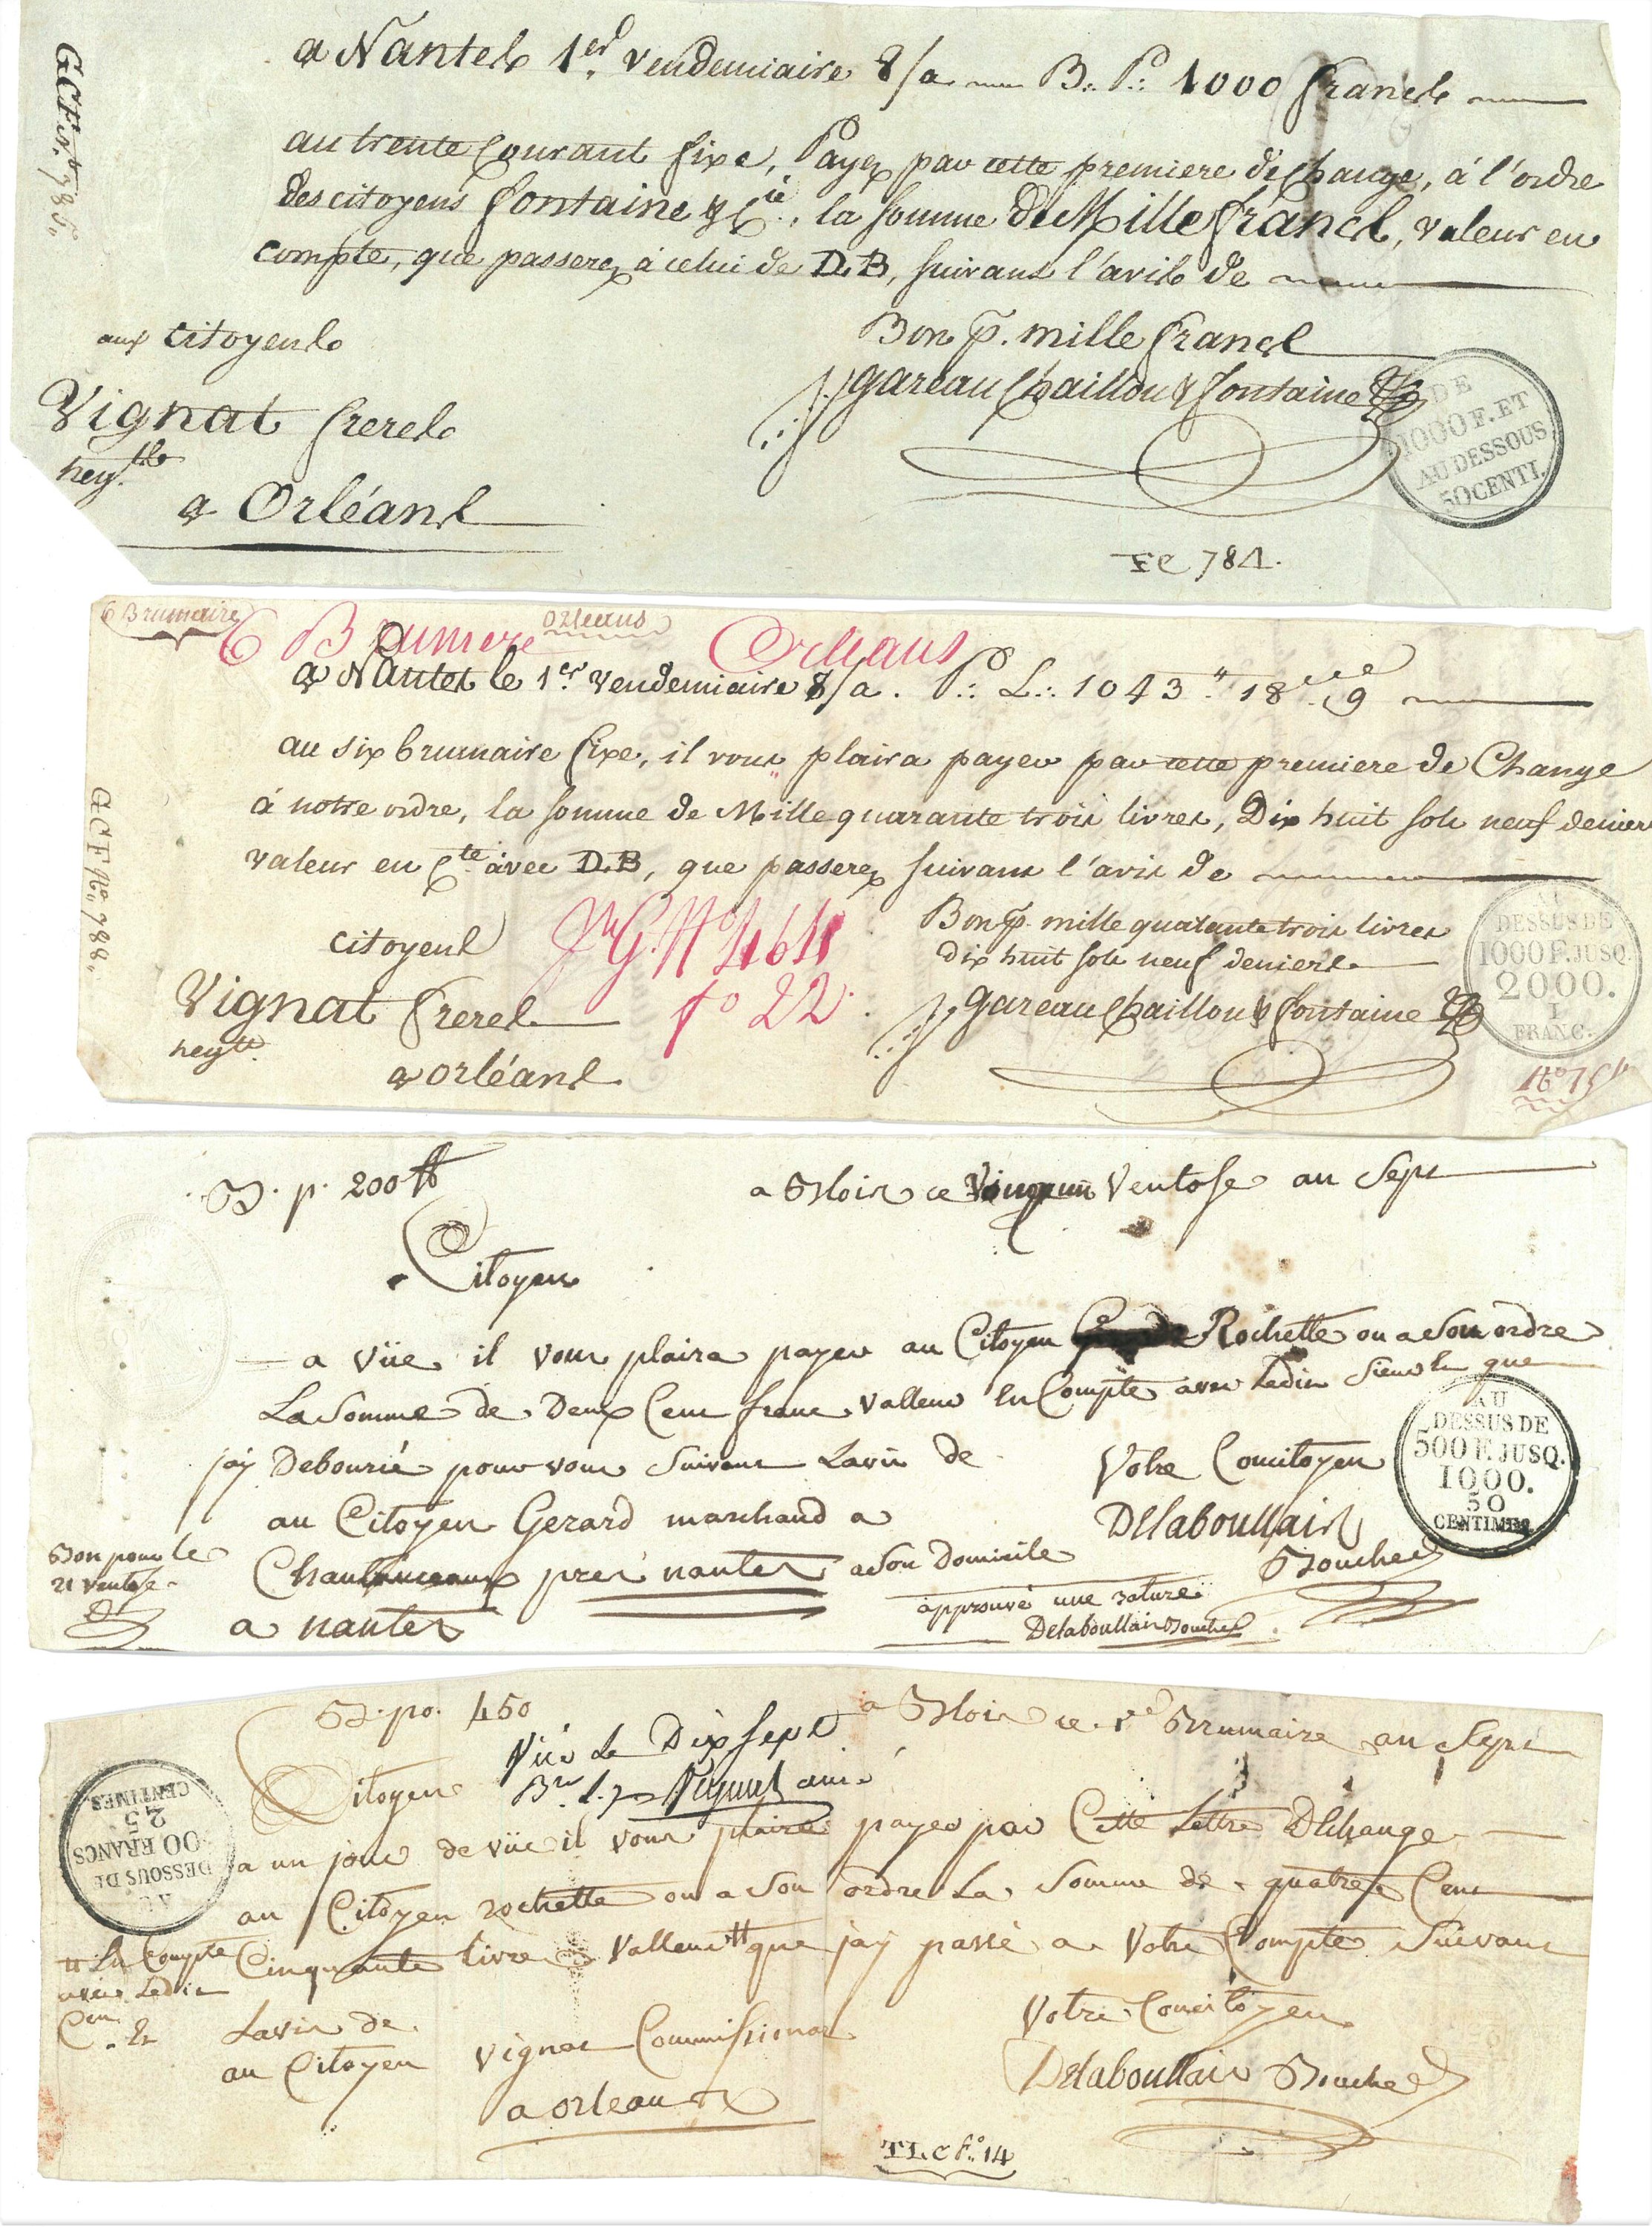 a Nantes 1er. vendemiaire 8/a B.: P.: 1000 francs
au trente Courant fixe, Payez par cette premiere d'Echange, à l'ordre
des citoyens fontaine & Cie., la somme de Mille francs, valeur en
compte, que passerez à celui de D.B, suivant l'avis de
Bon p. mille francs
aux citoyens
gareau Chaillou & fontaine
Vignat freres
negts
a Orléans
DE
1000 F. ET
AU DESSOUS
50 CENTI.
784.
6 Brumaire
6 Brumere
Orleans
Orleans
a Nantes le 1er. vendemiaire 8/a. P.: L.: 1043 " 18 " 9
au six brumaire fixe, il vous plaira payer par cette premiere de Change
à notre ordre, la somme de Mille quarante trois livres, Dix huit sols neuf denier
valeur en Cte. avec D.B, que passerez suivant l'avis de
Bon p. mille quarante trois livres
dix huit sols neuf deniers
citoyens
Vignat freres
fo 22
gareau Chaillou & fontaine
negts.
a orléans
DESSUS DE
1000 F. JUSQ.
2000.
1
FRANC.
B. p. 200 tt
a Blois ce Vingt un Ventose an Sept
Citoyen
a vüe il vous plaira payer au Citoyen Rochette ou a Son ordre
La Somme de Deux Cent franc valleur En Compte avec Ledit Sieur que
jay Debourié pour vous Suivant Lavis de
Votre Concitoyen
au Citoyen Gerard marchand a
Delaboullais
Bouchet
Bon pour le
21 Ventose
pres nantes a Son Domicile
a nantes
approuvé une rature
Delaboullais Bouchet
AU
DESSUS DE
500 F. JUSQ.
1000.
50
CENTIMES
B. po. 450
a Blois ce Brumaire an Sept
Vüe Le Dix Sept
Citoyen
a un jour de vüe il vous plaira payer par Cette Lettre DEchange
au Citoyen rochette ou a Son ordre La Somme de quatre Cent
Cinquante livre Valleur tt que jay passé a Votre Compte Suivant
tt En Compte
avec Ledit
Lavis de
Votre Concitoyen
au Citoyen Vignat Commissionar
Delaboullais Bouchet
a orleans
AU
DESSOUS DE
00 FRANCS
25
CENTIMES